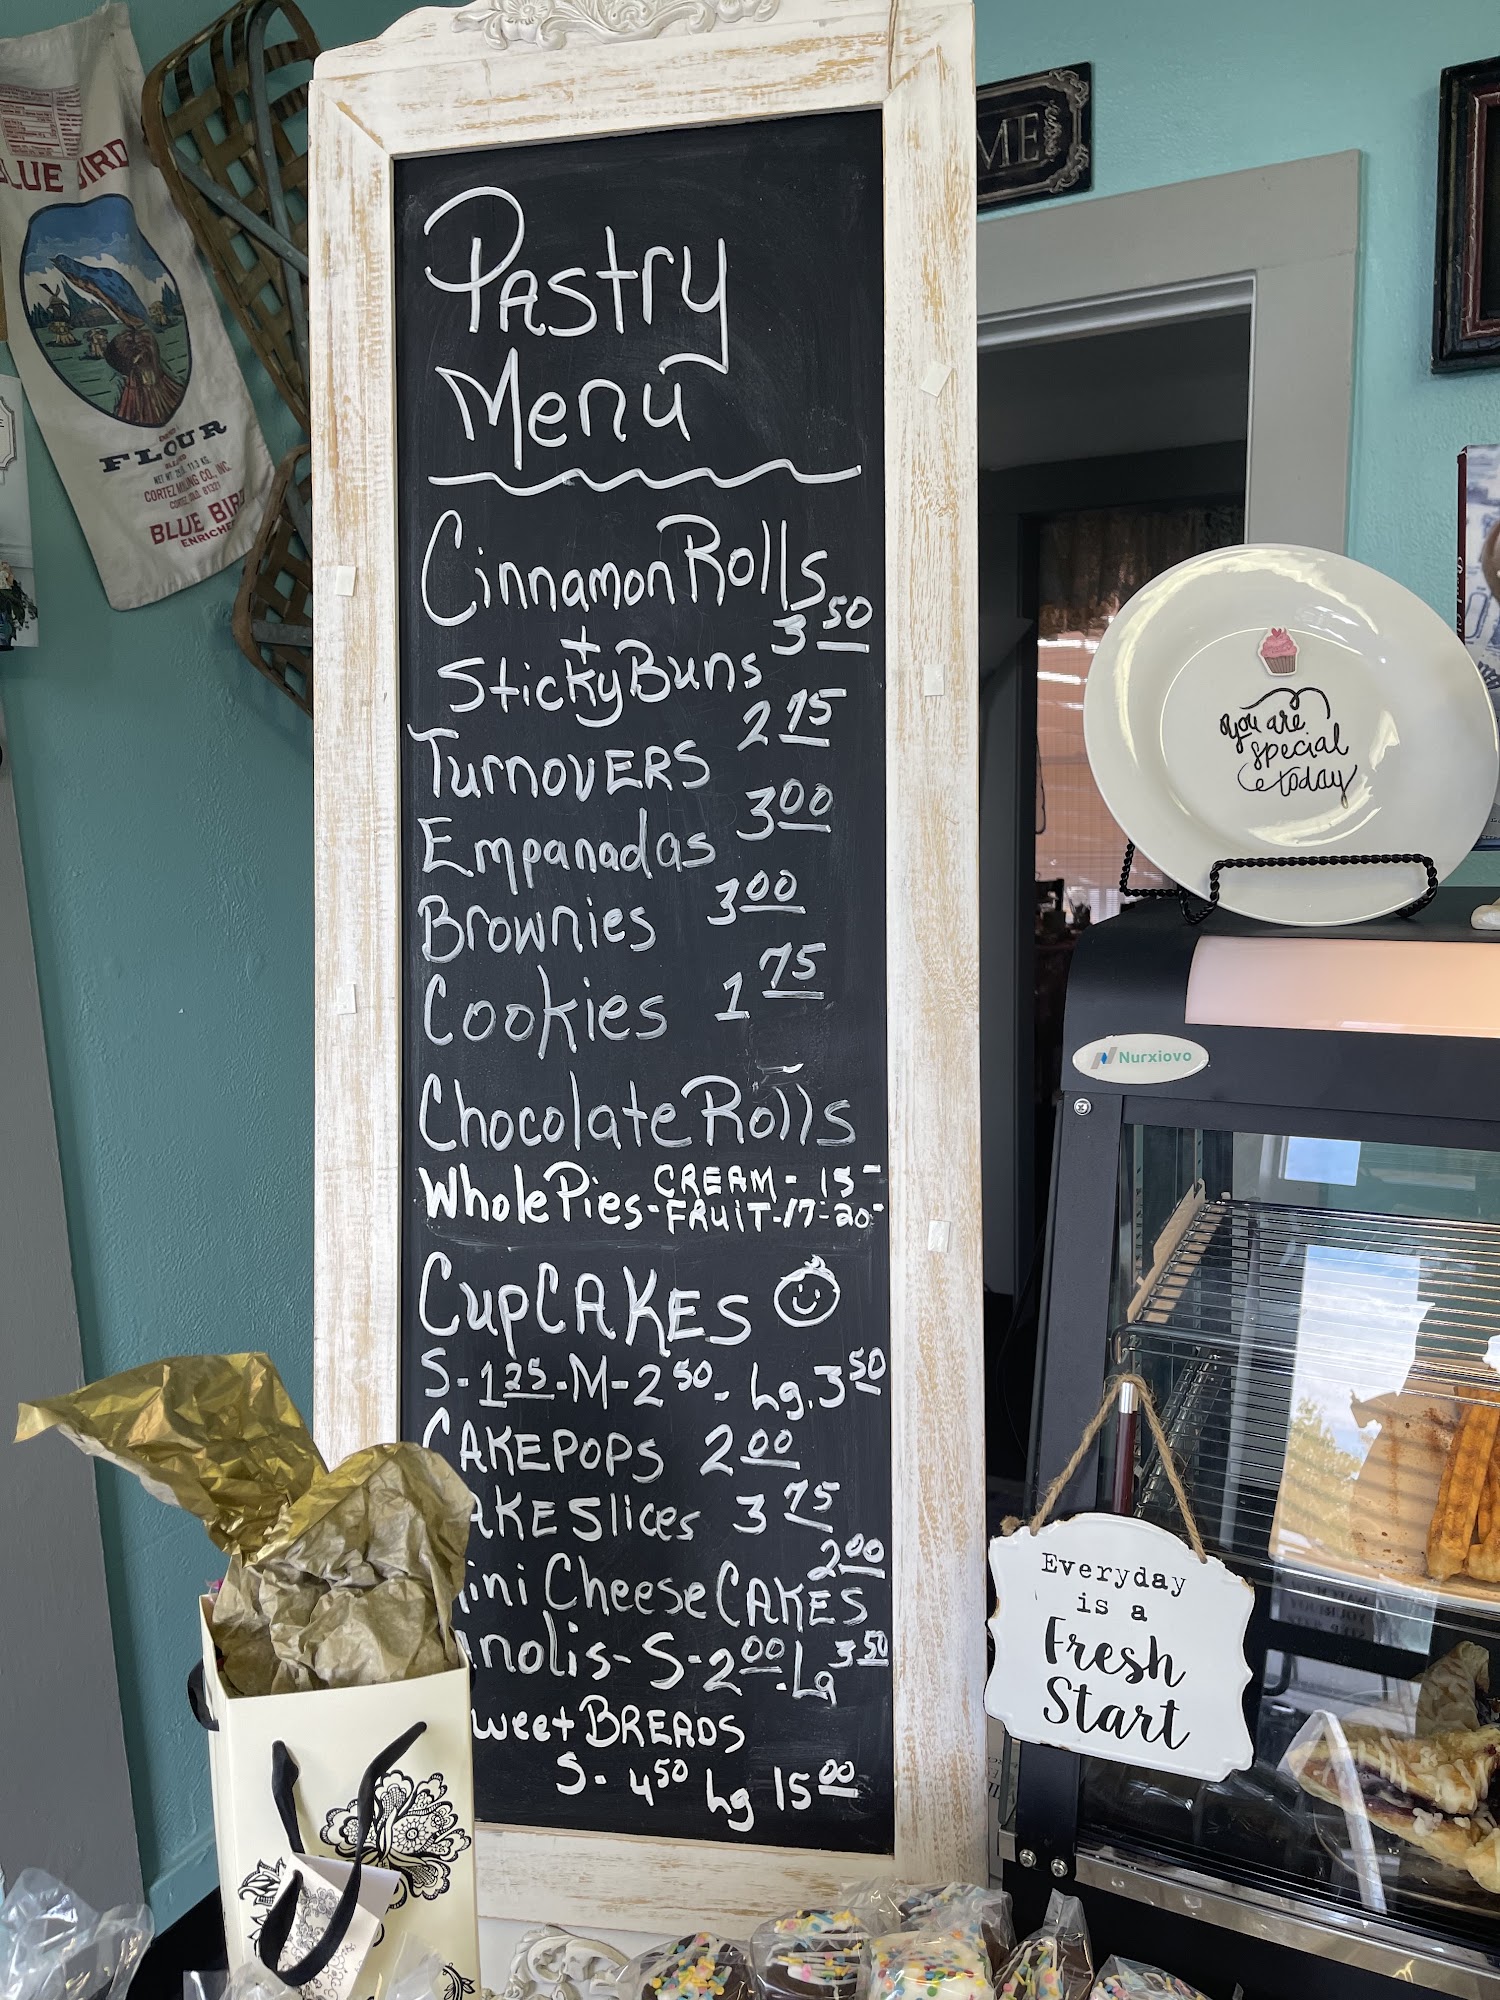 Pastry
Menu
Cinnamon Rolls
+ 3 50
Sticky Buns
Turnovers 2 75
Empanadas 3 00
Brownies 3 00
Cookies 1 75
Chocolate Rolls
Whole Pies - CREAM - 15 -
FRUIT - 17 - 20 -
CupCAKES
S - 1 25 - M - 2 50 - Lg. 3 50
CAKEPOPS 2 00
AKE Slices 3 75
2 00
ini Cheese CAKES
nolis - S - 2 00 . Lg 3 50
weet BREADS
S - 4 50 Lg 15 00
BLUE BIRD
FLOUR
NET WT. 25 LB. 11.3 KG.
CORTEZ MILLING CO., INC.
CORTEZ, COLO. 81321
BLUE BIRD
ENRICHED
ME
you are
special
today
Nurxiovo
Everyday
is a
Fresh
Start